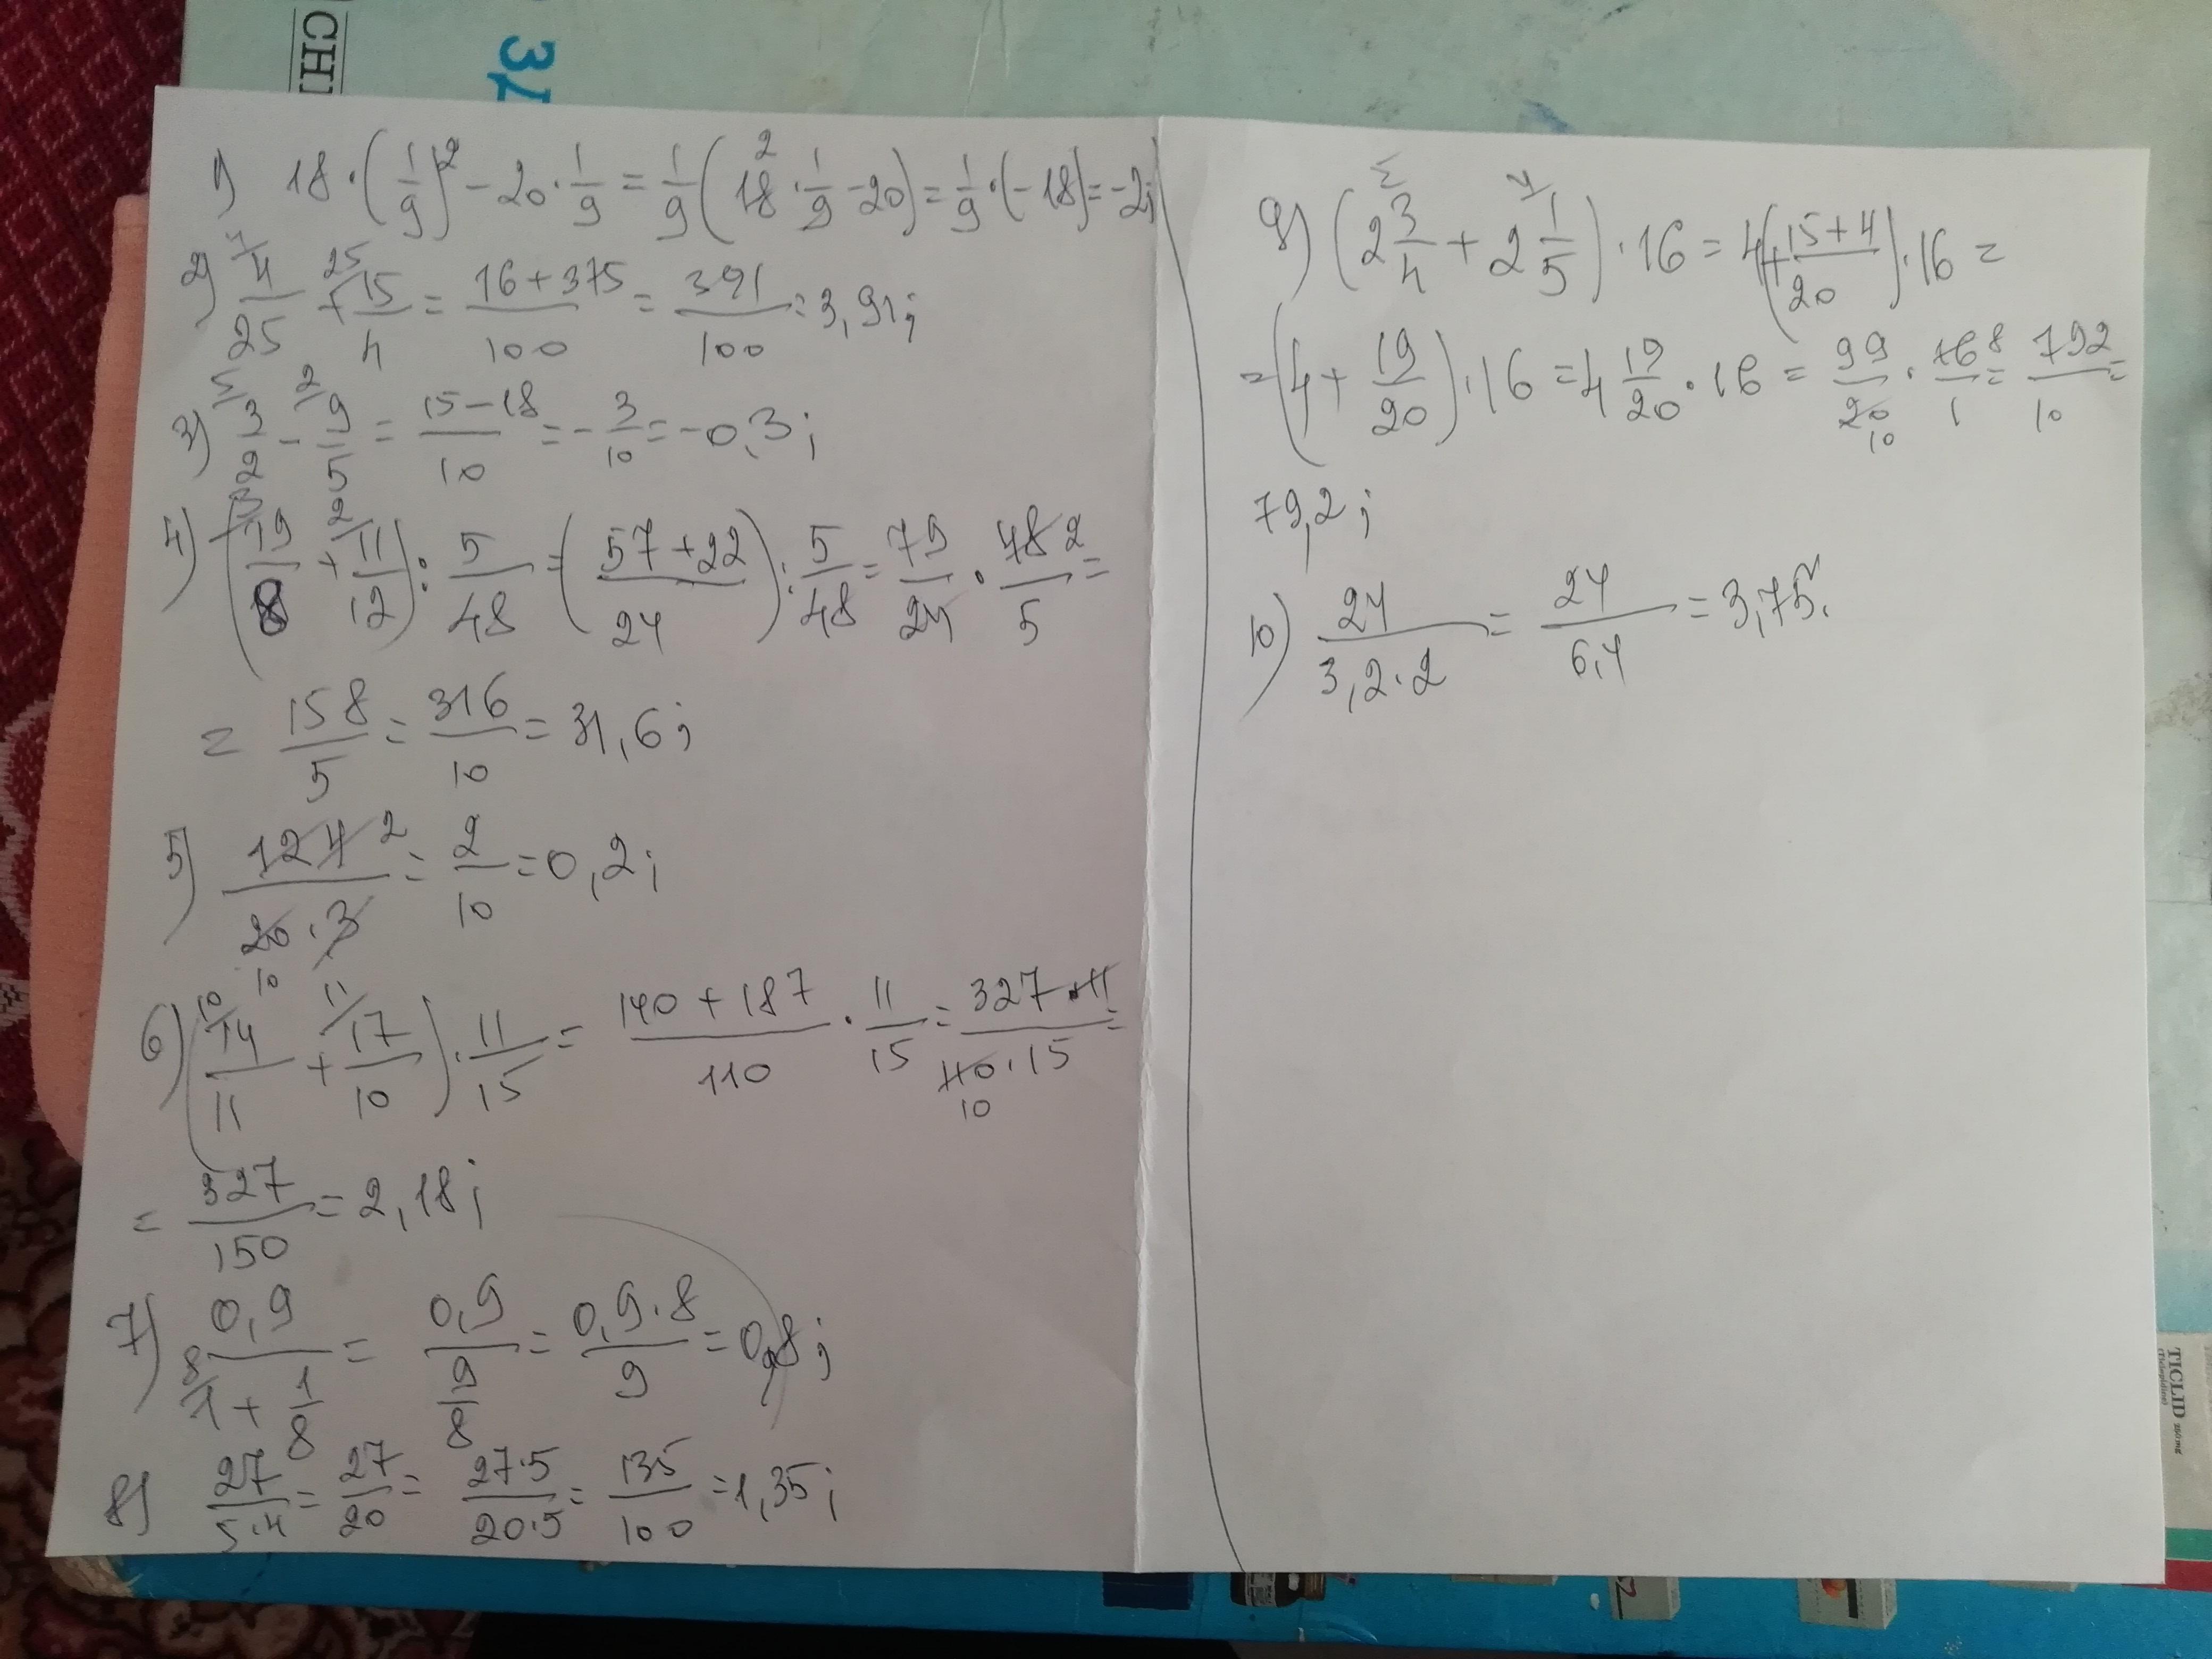 CHI
3
1) 18·(1/9)² − 20·1/9 = 1/9(18² · 1/9 − 20) = 1/9·(−18) = −2;
2) 4/ 4/25 + 25/ 15/4 = (16+375)/100 = 391/100 = 3,91;
3) 5/ 3/2 − 2/ 9/5 = (15−18)/10 = −3/10 = −0,3;
4) (3/ 19/8 + 2/ 11/12) : 5/48 = ((57+22)/24) : 5/48 = 79/24 · 48 2/5 =
= 158/5 = 316/10 = 31,6;
5) 12 4 2/(20 10 · 3) = 2/10 = 0,2;
6) (10/ 14/11 + 11/ 17/10) · 11/15 = (140+187)/110 · 11/15 = (327·11)/(110 10 · 15) =
= 327/150 = 2,18;
7) 0,9/(8/ 1 + 1/8) = 0,9/(9/8) = (0,9·8)/9 = 0,8;
8) 27/(5·4) = 27/20 = (27·5)/(20·5) = 135/100 = 1,35;
9) (2 5/ 3/4 + 2 4/ 1/5) · 16 = 4(+(15+4)/20) · 16 =
= (4 + 19/20) · 16 = 4 19/20 · 16 = 99/20 10 · 16 8/1 = 792/10 =
79,2;
10) 24/(3,2·2) = 24/6,4 = 3,75.
TICLID